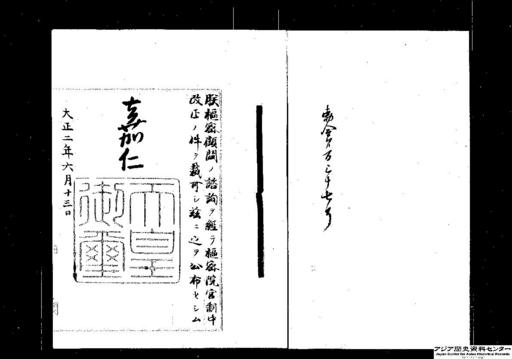 朕枢密顧問ノ諮詢ヲ経テ枢密院官制中
改正ノ件ヲ裁可シ茲ニ之ヲ公布セシム
嘉仁
天皇御璽
大正二年六月十三日
アジア歴史資料センター
Japan Center for Asian Historical Records